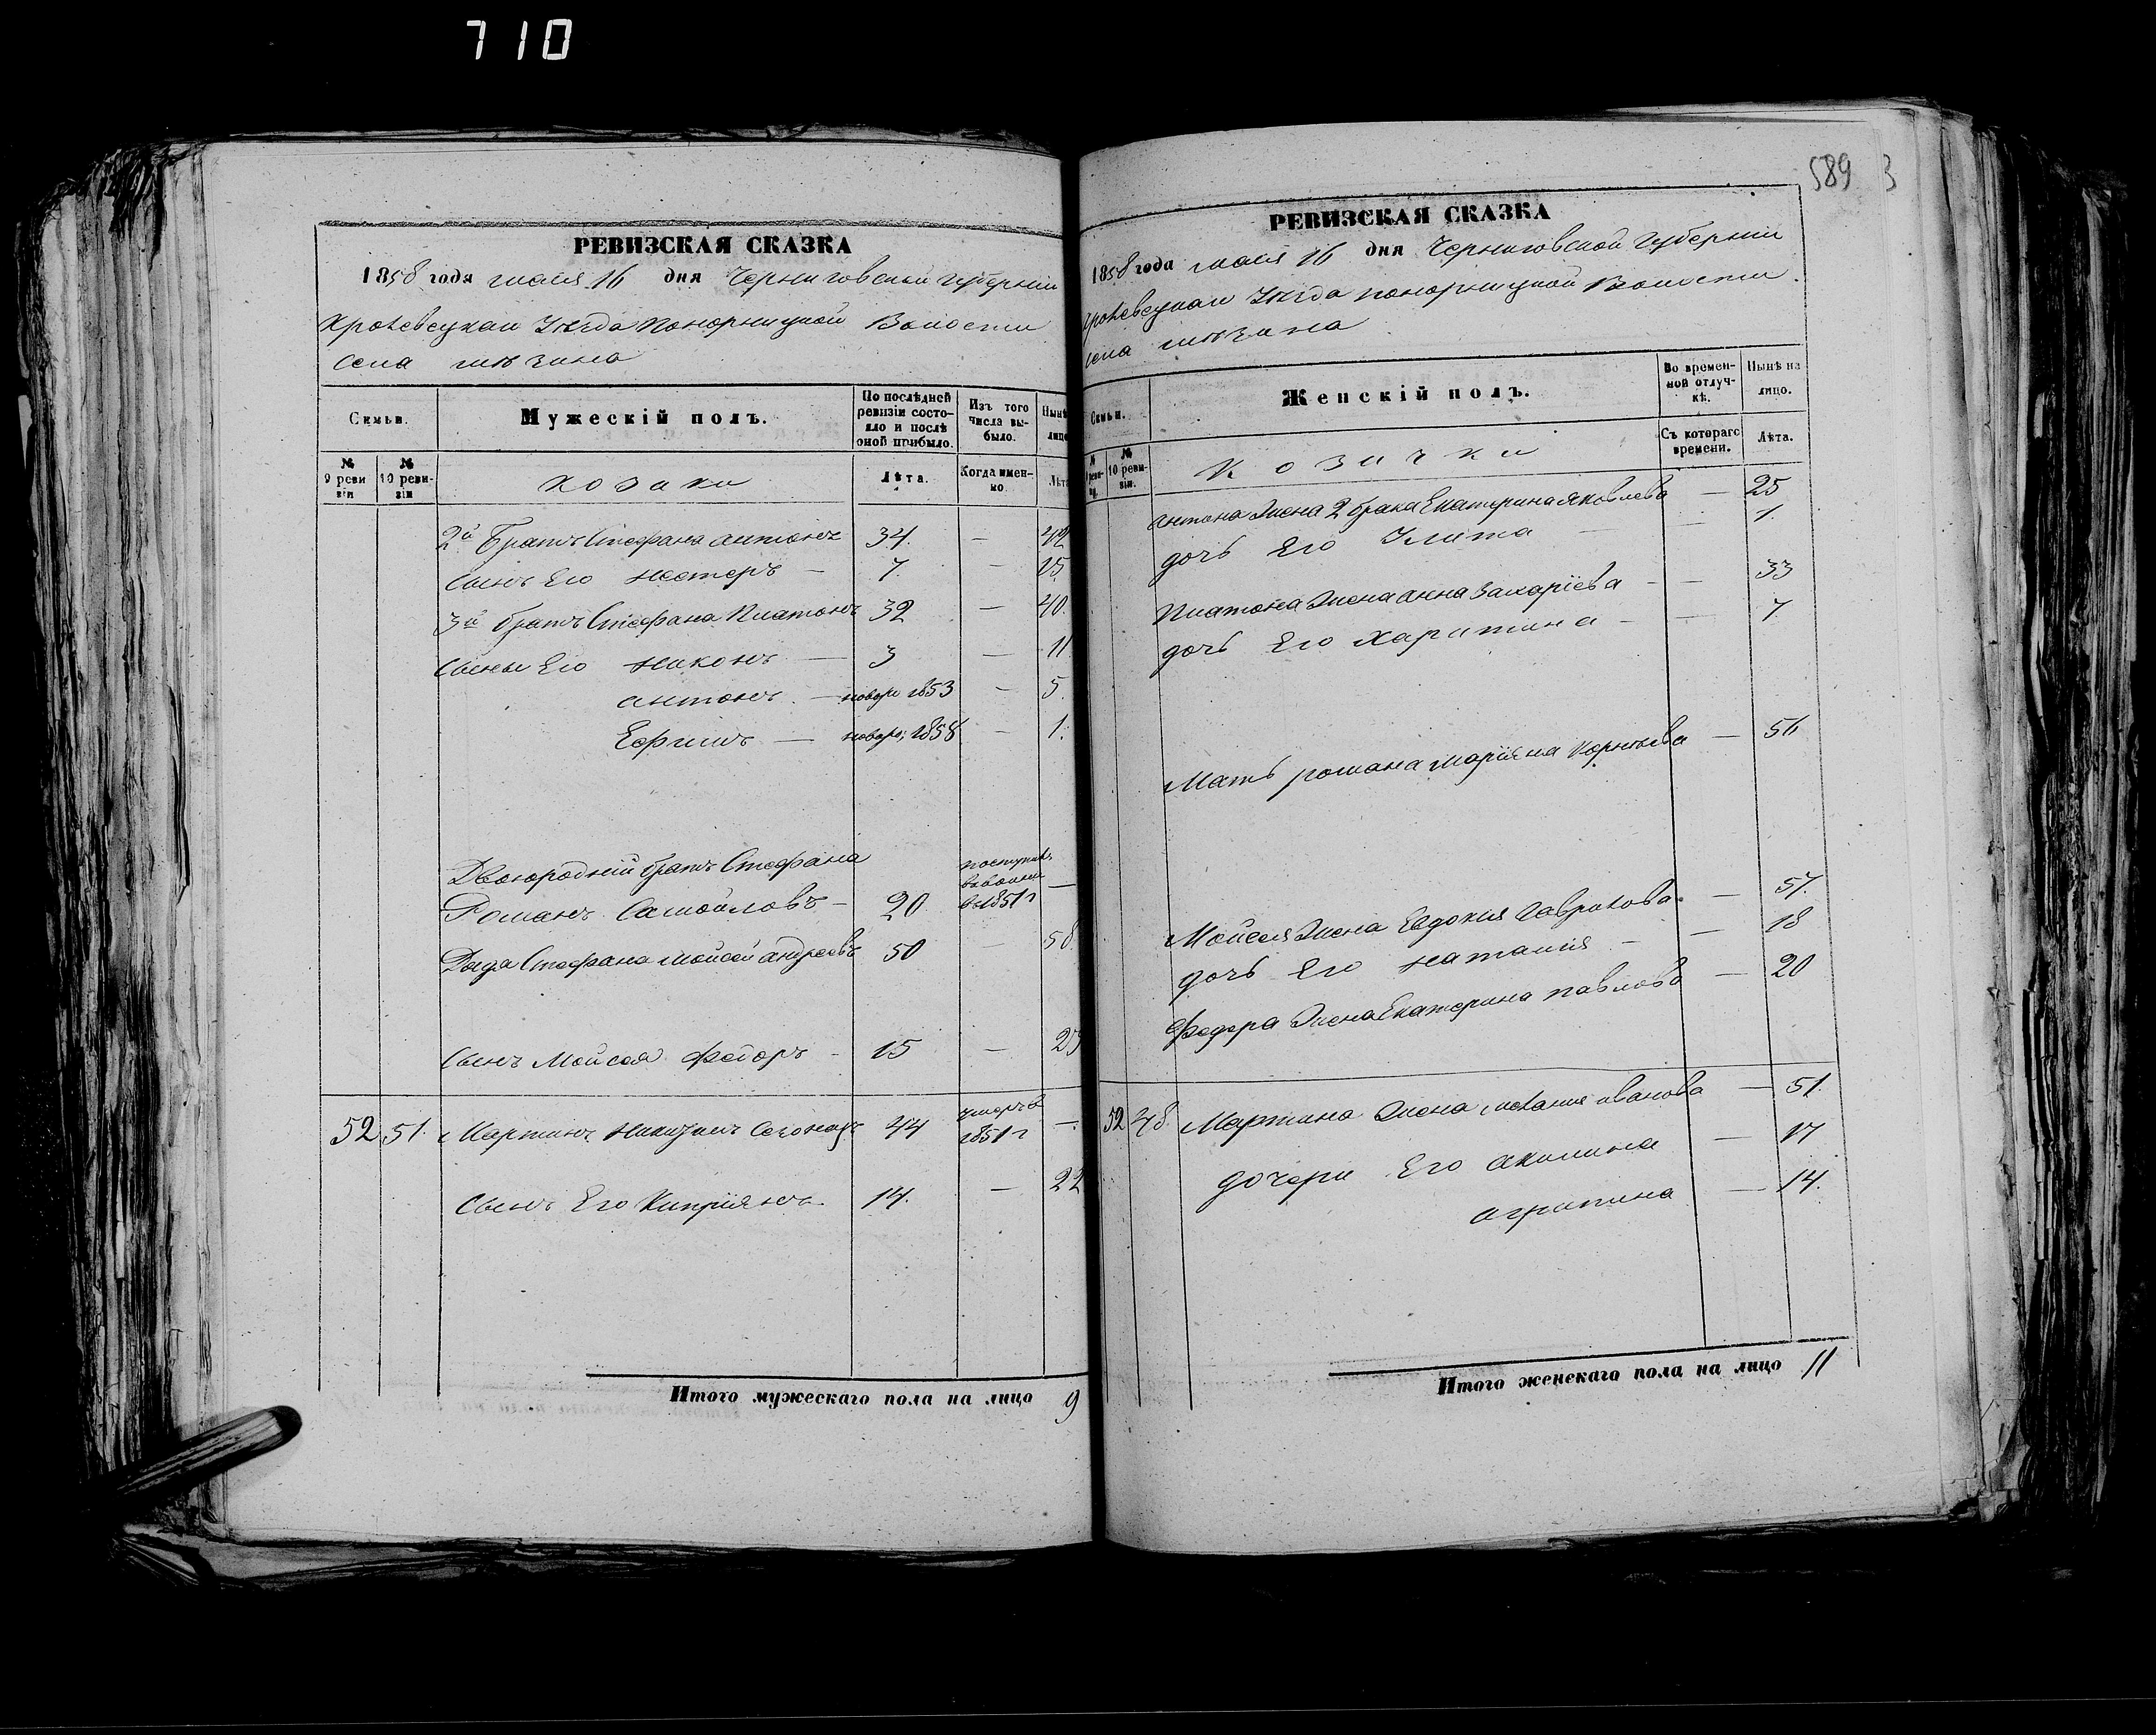 710
589 3
РЕВИЗСКАЯ СКАЗКА
1858 года мая 16 дня Черниговской Губерніи
Кролевецкаго Уезда Понорницкой Волости
села Мезина
Семьи. Мужескій полъ. По послѣдней ревизіи состояло и послѣ оной прибыло. Изъ того числа выбыло. Нынѣ лицо
№ 9 ревизіи № 10 ревизіи козаки Лѣта. Когда именно Лѣта
2й Братъ Стефана Антонъ 34. — 42
Сынъ Его Нестеръ — 7. — 15
3й братъ Стефана Платонъ 32 — 40
Сыны Его Никонъ — 3 — 11
Антонъ — новоро 1853 — 5.
Ефимъ — новоро; 1858 — 1.
Двоюродній братъ Стефана
Романъ Самойловъ — 20 въ 1851 г —
Дядя Стефана Мойсей Андреевъ 50 — 58.
Сынъ Мойсея Федоръ - 15 — 23
52 51. Мартинъ 44 умеръ в 1851 г —
Сынъ Его Кипріянъ 14. — 22
Итого мужескаго пола на лицо 9
РЕВИЗСКАЯ СКАЗКА
1858 года мая 16 дня Черниговской Губерніи
Кролевецкаго Уезда Понорницкой Волости
села Мезина
Семьи. Женскій полъ. Во временной отлучкѣ. Нынѣ на лицо.
№ 9 ревизіи № 10 ревизіи. Козачки Съ котораго времени. Лѣта.
Антона Жена 2 брака Екатерина Яковлева — 25
дочь Его Улита — 1.
Платона Жена Анна Захаріева — 33
дочь Его Харитина — 7
Мать Романа Маріяна Корнѣева — 56
Мойсея Жена Евдокия Гаврилова — 57.
дочь Его Наталия — 18
Федора Жена Екатерина Павлова — 20
52 48. Мартина Жена Мелания Иванова — 51.
дочери Его Акилина — 17
Агрипина — 14.
Итого женскаго пола на лицо 11